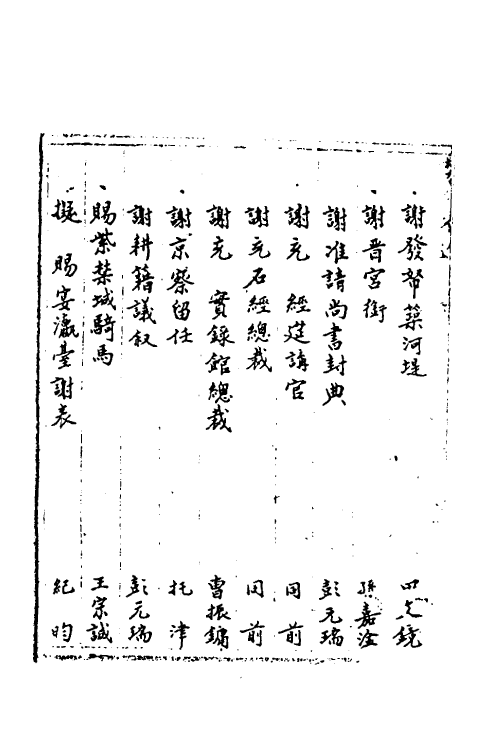 謝發帑築河堤 田文鏡
謝晋宮銜 孫嘉淦
謝准請尚書封典 彭元瑞
謝充 經筵講官 同前
謝充石經總裁 同前
謝充 實錄館總裁 曹振鏞
謝京察留任 托津
謝耕籍議叙 彭元瑞
賜紫禁城騎馬 王宗誠
擬 賜宴瀛臺謝表 紀昀